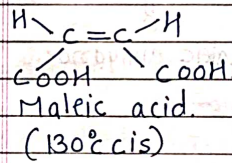 H H
C=C
COOH COOH
Maleic acid.
(130°c cis)